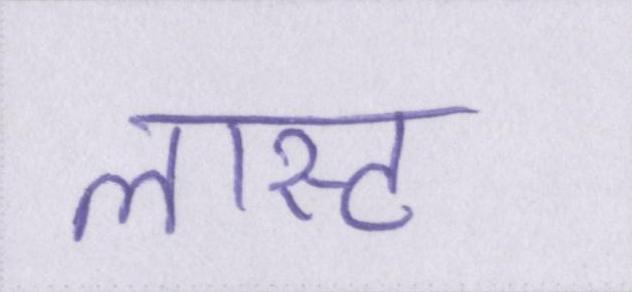 लास्ट